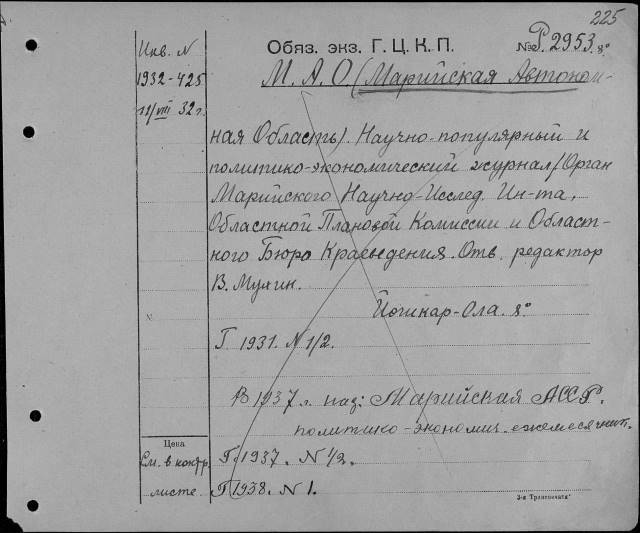 225
Инв. N
1932-425
11/VIII 32 г.
Обяз. экз. Г. Ц. К. П.
№ Р. 2953. 8°
М. А. О. (Марийская Автоном-
ная Область). Научно-популярный и
политико-экономический журнал/Орган
Марийского Научно-Исслед. Ин-та,
Областной Плановой Комиссии и Област-
ного Бюро Краеведения. Отв. редактор
В. Мухин.
Йошкар-Ола. 8°
Г. 1931. N 1/2.
В 1937 г. наз: Марийская АССР.
политико-экономич. ежемесячник.
Цена
См. в контр.
листе.
Г. 1937. N 1/2.
Г. 1938. N 1.
3-я Транспечати